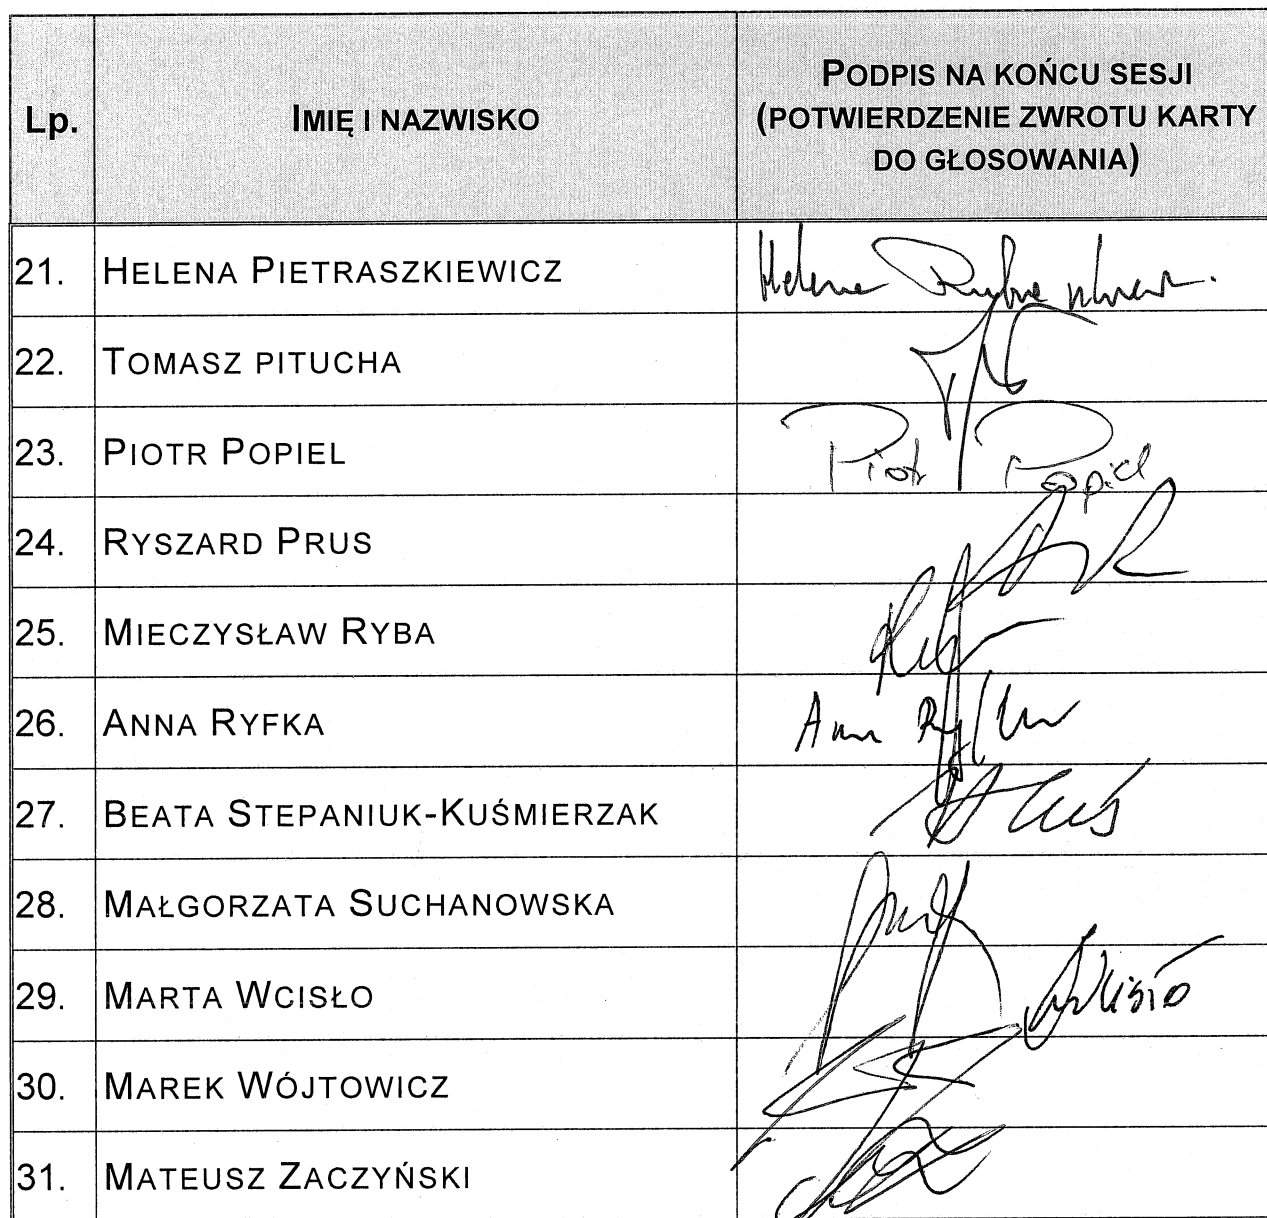 Lp.
IMIĘ I NAZWISKO
PODPIS NA KOŃCU SESJI
(POTWIERDZENIE ZWROTU KARTY
DO GŁOSOWANIA)
21. HELENA PIETRASZKIEWICZ Helena
22. TOMASZ PITUCHA
23. PIOTR POPIEL Piotr Popiel
24. RYSZARD PRUS
25. MIECZYSŁAW RYBA
26. ANNA RYFKA Anna Ryfka
27. BEATA STEPANIUK-KUŚMIERZAK
28. MAŁGORZATA SUCHANOWSKA
29. MARTA WCISŁO Wcisło
30. MAREK WÓJTOWICZ
31. MATEUSZ ZACZYŃSKI